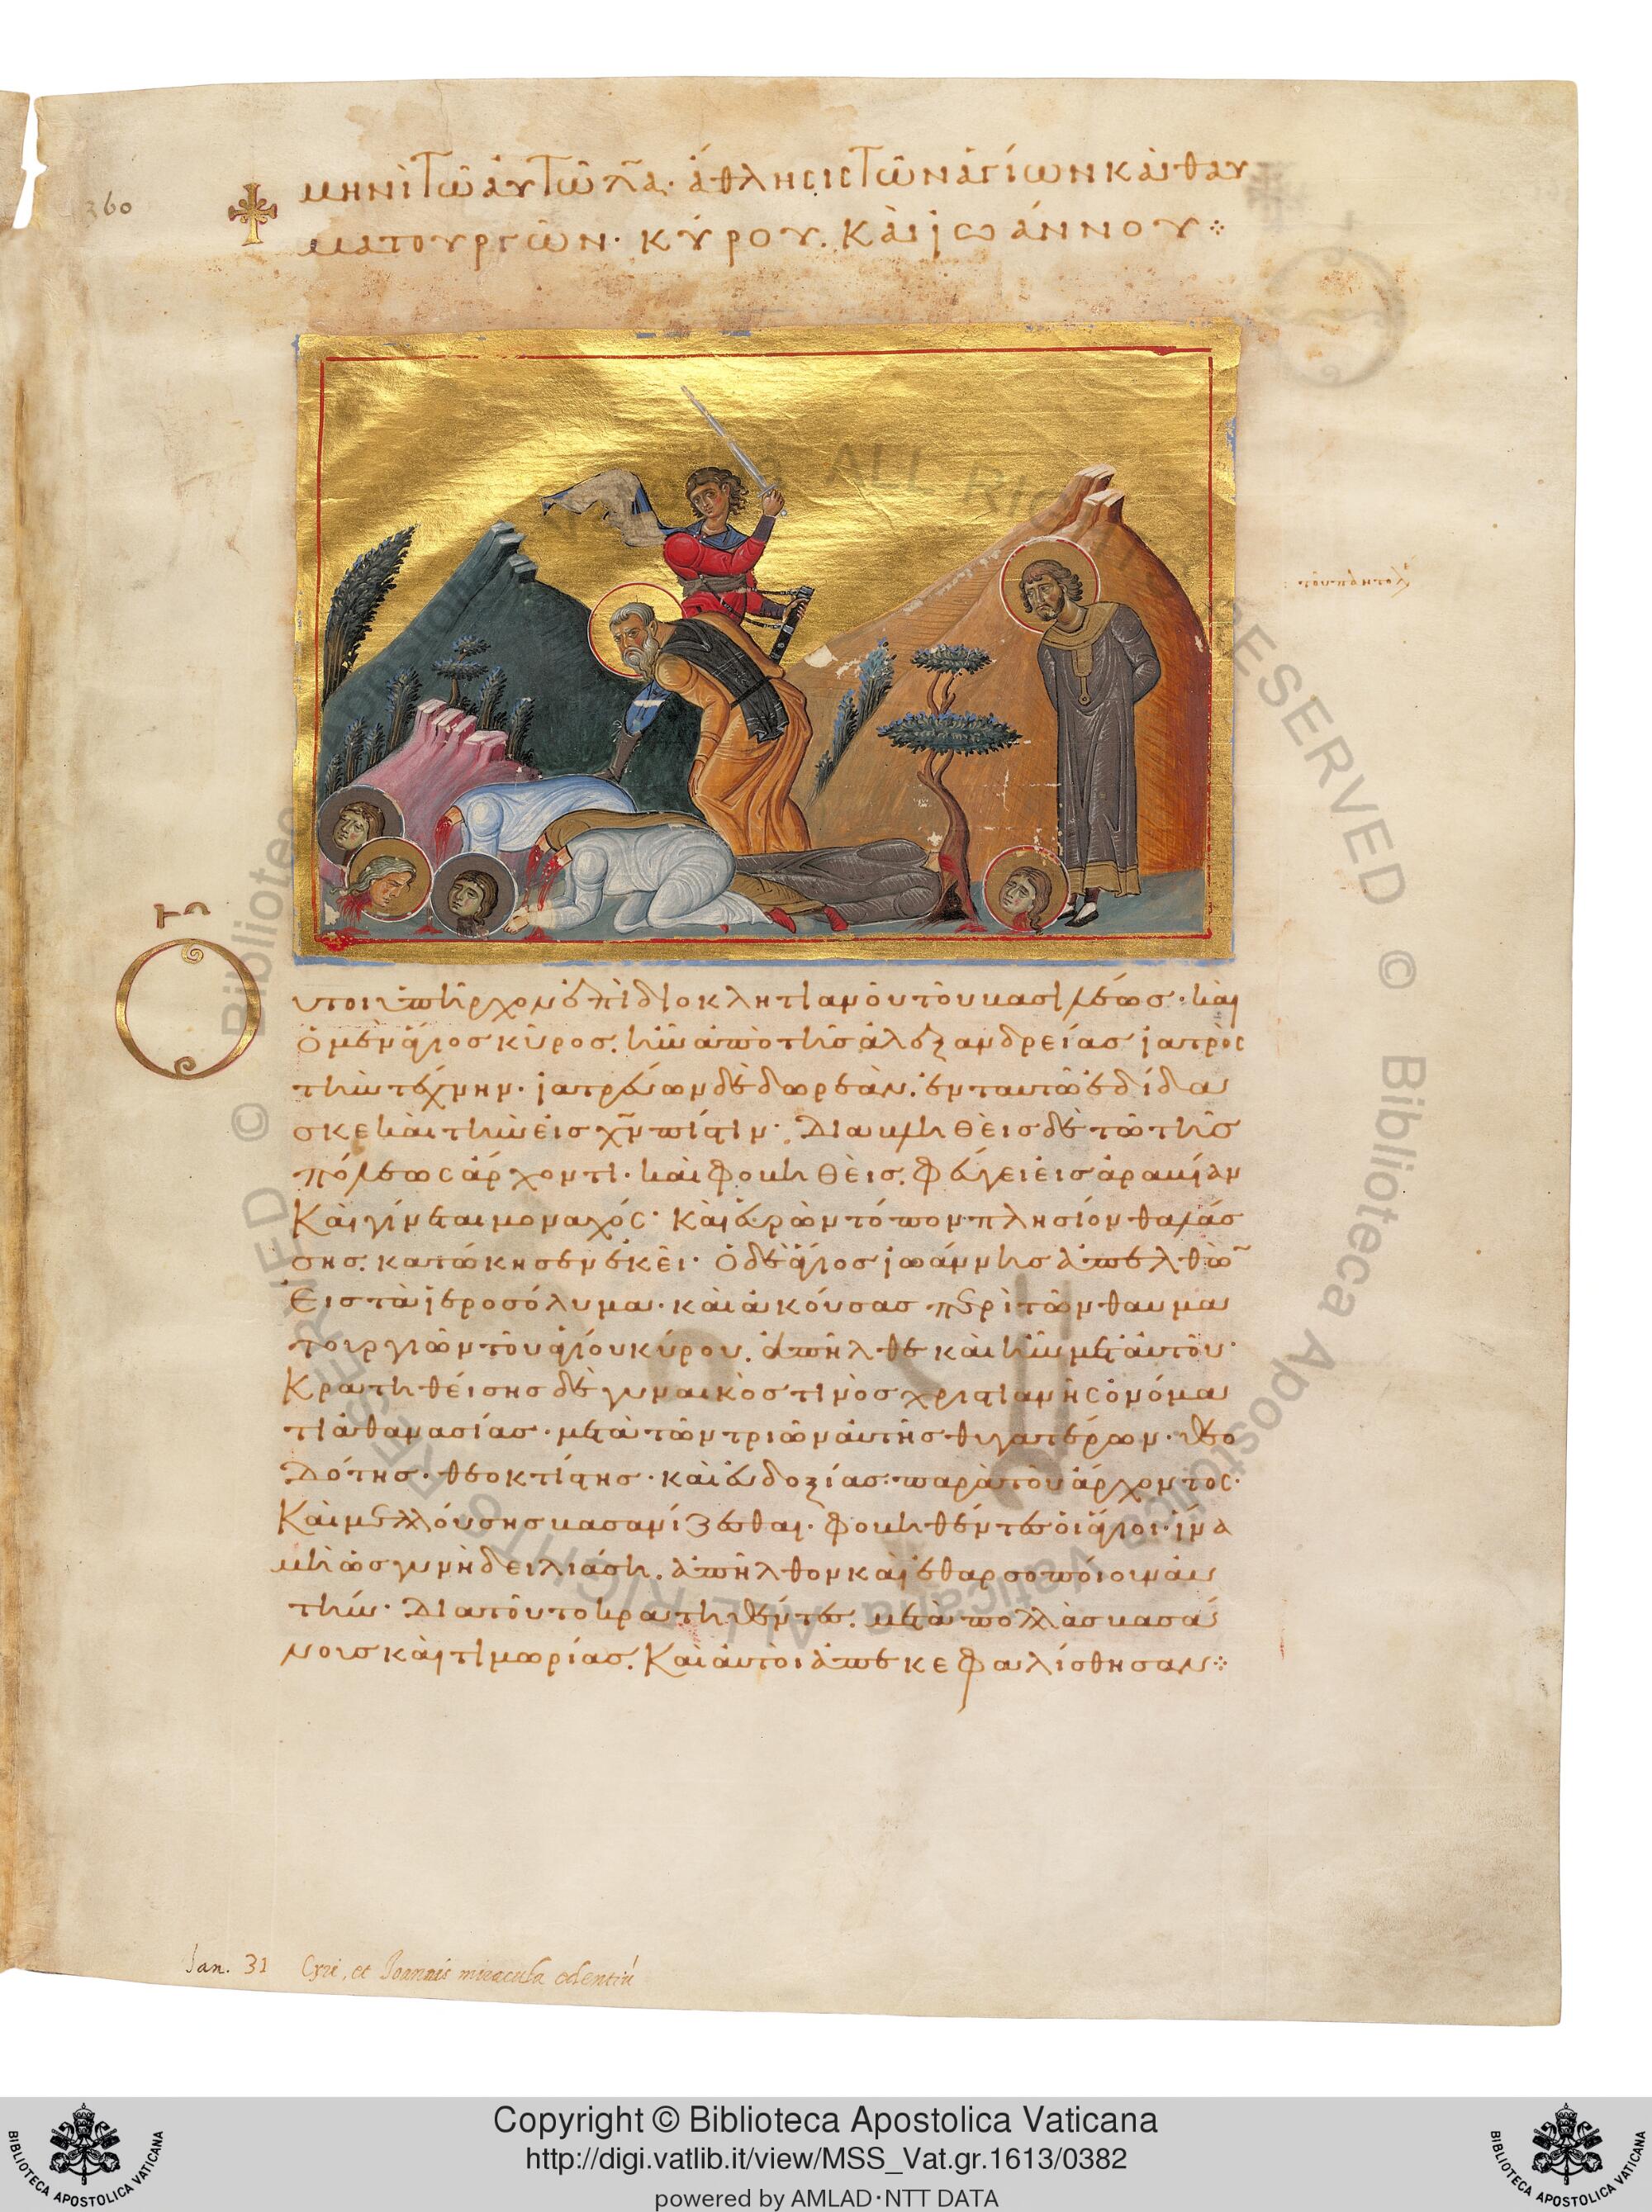 360
μηνὶ τῶ αὐτῶ λ̅α̅· ἄθλησις τῶν ἁγίων καὶ θαυ
ματουργῶν· κύρου. καὶ ἰωάννου⁘
Οὗτοι ὑπῆρχον ἐπὶ διοκλητιανοῦ τοῦ βασιλέως· καὶ
ὁ μὲν ἅγιος κῦρος. ἦν ἀπὸ τῆς ἀλεξανδρείας ἰατρὸς
τὴν τέχνην· ἰατρεύων δὲ δωρεὰν. ἐν ταυτῶ ἐδίδα
σκε καὶ τὴν εἰς χ̅ν̅ πίστιν· Διαβληθεὶς δὲ τῶ τῆς
πόλεως ἄρχοντι· καὶ φοβηθεὶς. φεύγει εἰς ἀραβίαν
Καὶ γίνεται μοναχός· Καὶ εὑρὼν τόπον πλησίον θαλάσ
σης. κατώκησεν ἐκεῖ· Ὁ δὲ ἅγιος ἰωάννης ἀπελθὼ̅
Εἰς τὰ ἱεροσόλυμα· καὶ ἀκούσας περὶ τῶν θαυμα
τουργιῶν τοῦ ἁγίου κύρου. ἀπῆλθε καὶ ἦν μετ αὐτοῦ·
Κρατηθείσης δὲ γυναικὸς τινὸς χριστιανῆς ὀνόμα
τι ἀθανασίας· μετὰ τῶν τριῶν αὐτῆς θυγατέρων· θεο
Δότης· θεοκτίστης· καὶ εὐδοξίας· παρὰ τοῦ ἄρχοντος·
Καὶ μελλούσης βασανίζεσθαι· φοβηθέντες οἱ ἅγιοι· ἵνα
μὴ ὡς γυνὴ δειλιάση. ἀπῆλθον καὶ ἐθαρσοποίουν αὐ
τήν· Διατοῦτο κρατηθέντες. μετὰ πολλὰς βασά
νους καὶ τιμωρίας. Καὶ αὐτοὶ ἀπεκεφαλίσθησαν⁘
Jan. 31 Cyri, et Joannis miracula edentiū
Copyright © Biblioteca Apostolica Vaticana
http://digi.vatlib.it/view/MSS_Vat.gr.1613/0382
powered by AMLAD·NTT DATA
BIBLIOTECA APOSTOLICA VATICANA
BIBLIOTECA APOSTOLICA VATICANA
© Biblioteca Apostolica Vaticana ALL RIGHTS RESERVED